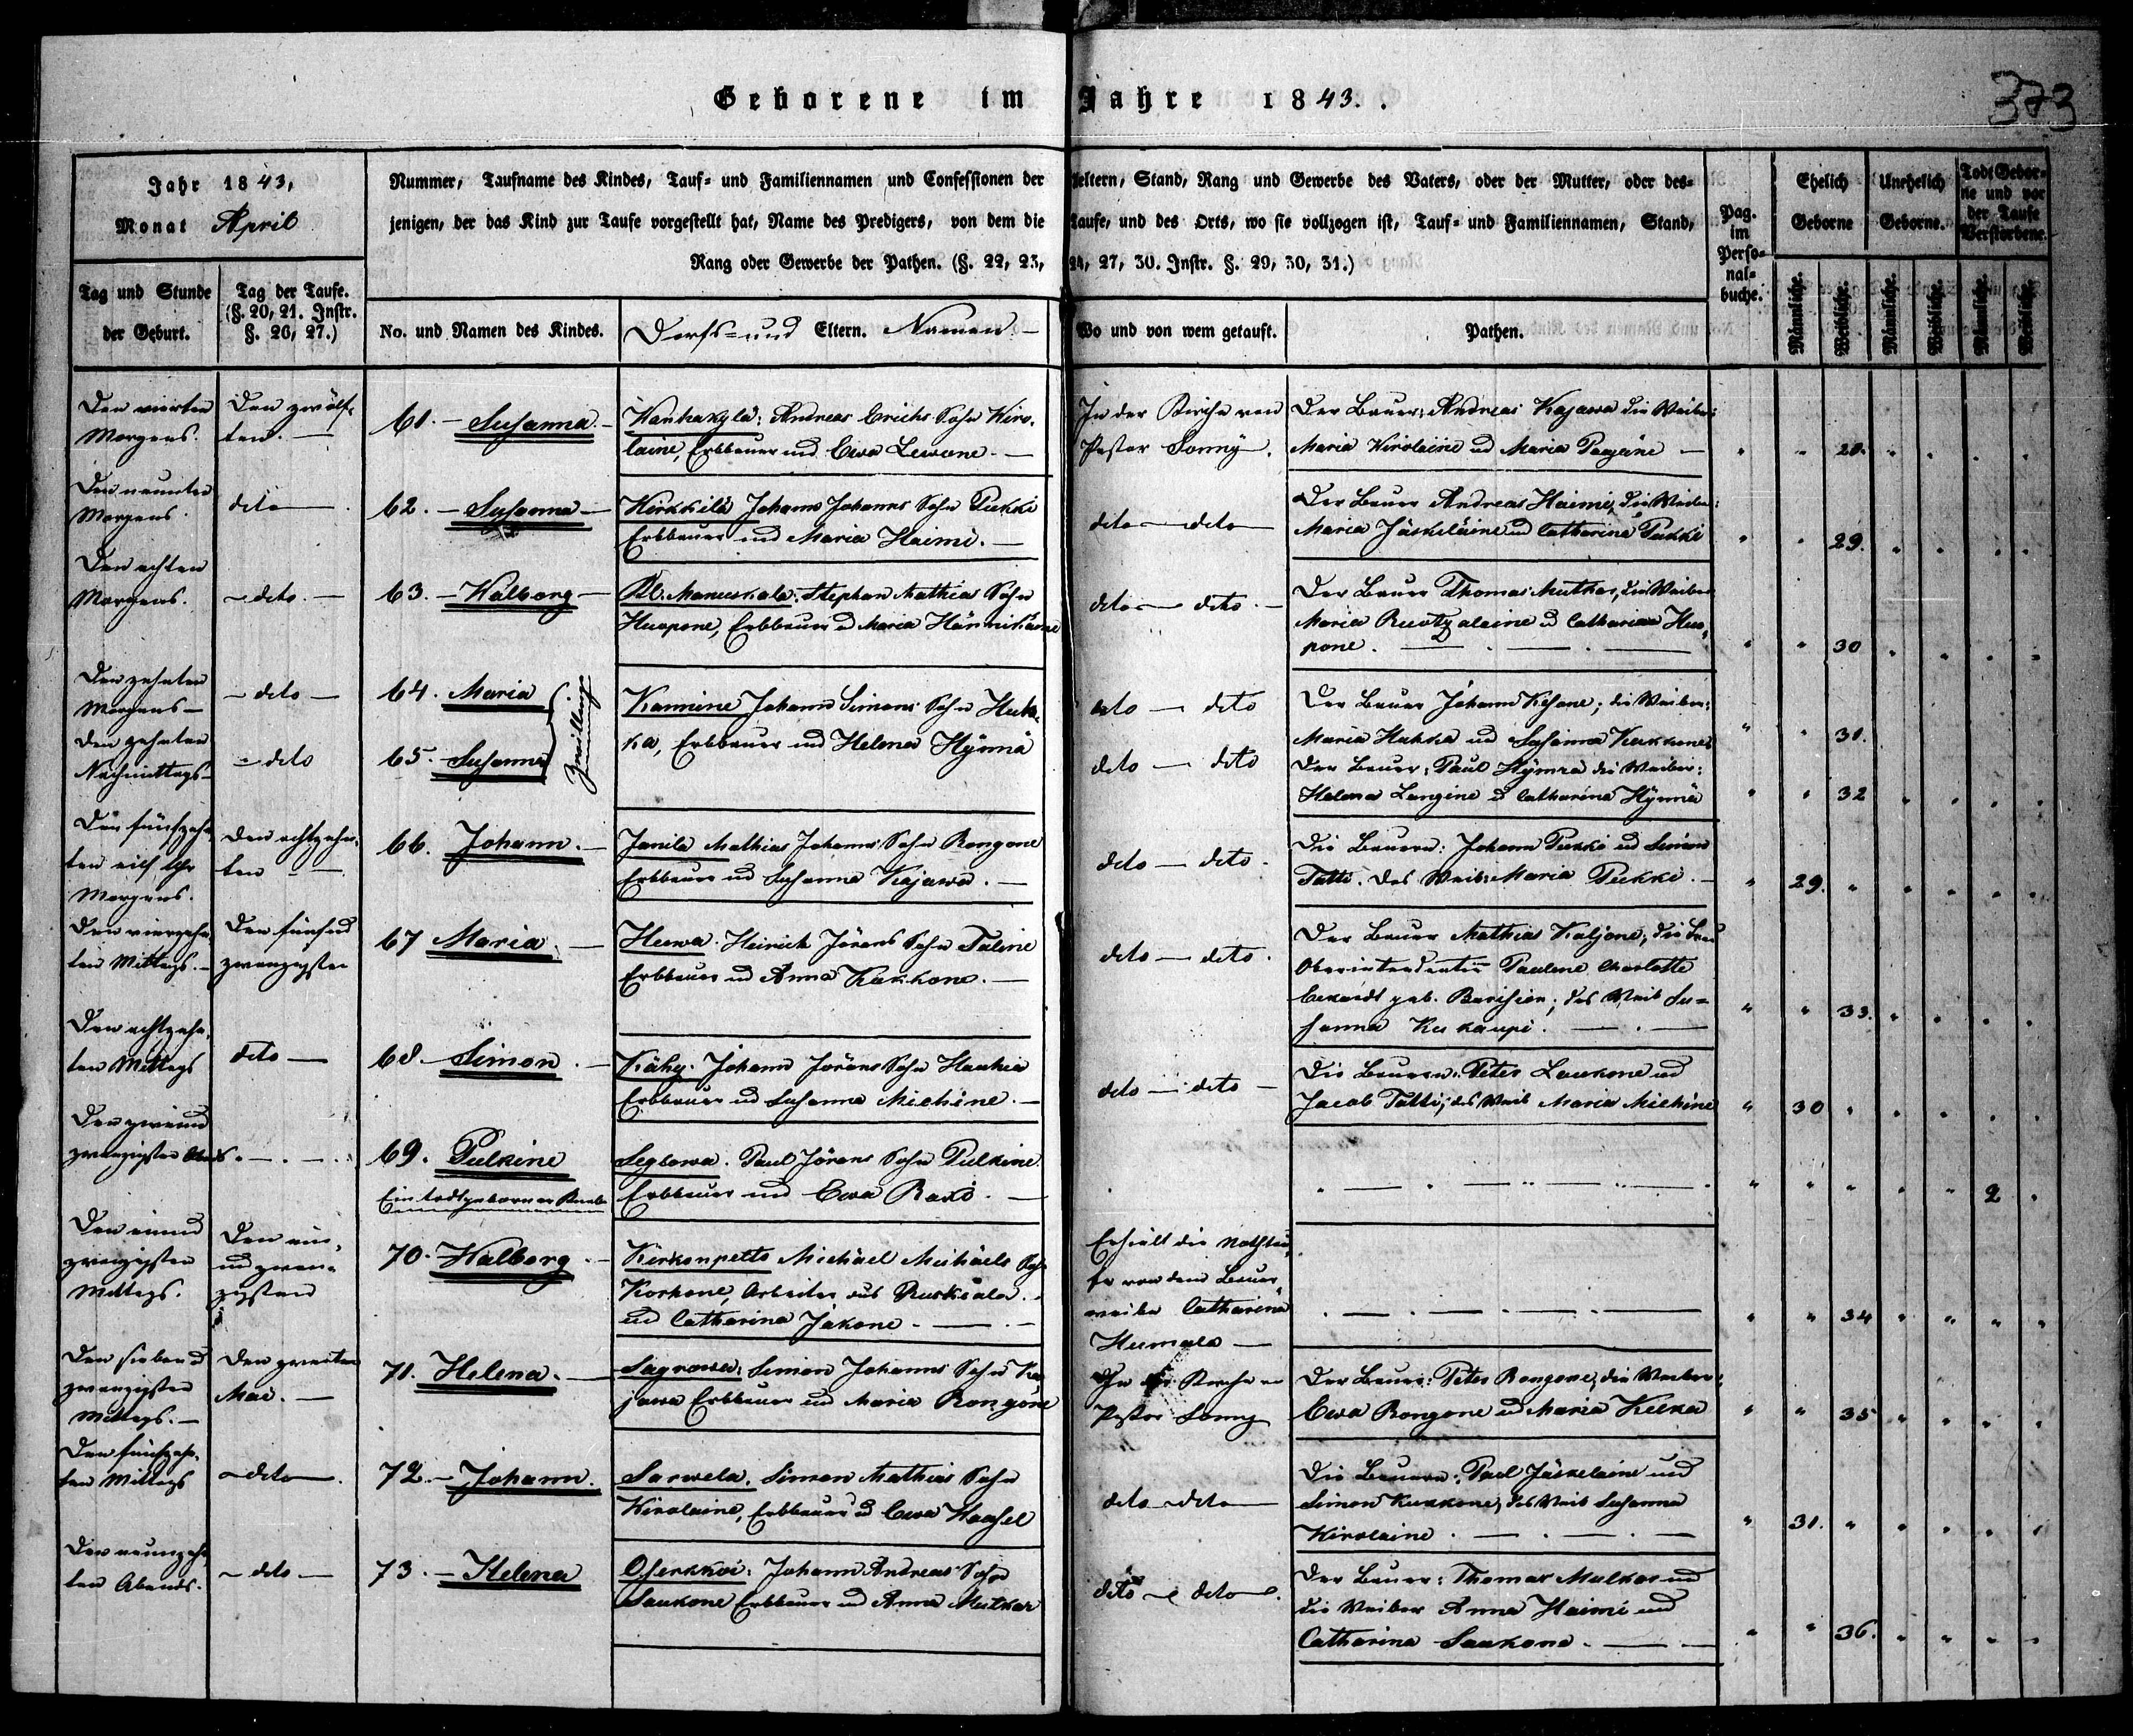 Geborene im Jahre 1843.
373
Jahr 1843,
Monat April
Nummer, Taufname des Kindes, Tauf- und Familiennamen und Confessionen der Aeltern, Stand, Rang und Gewerbe des Vaters, oder der Mutter, oder des-
jenigen, der das Kind zur Taufe vorgestellt hat, Name des Predigers, von dem die Taufe, und des Orts, wo sie vollzogen ist, Tauf- und Familiennamen, Stand,
Rang oder Gewerbe der Pathen. (§. 22, 23, 24, 27, 30. Instr. §. 29, 30, 31.)
Pag.
im
Perso-
nal-
buche.
Ehelich
Geborne
Unehelich
Geborne.
Todt Gebor-
ne und vor
der Taufe
Verstorbene.
Tag und Stunde
der Geburt.
Tag der Taufe.
(§. 20, 21. Instr.
§. 26, 27.)
No. und Namen des Kindes.
Dorfs- und Eltern. Namen
Wo und von wem getauft.
Pathen.
Männliche.
Weibliche.
Männliche.
Weibliche.
Männliche.
Weibliche.
Den vierten
Morgens.
Den zwölf-
ten.
61. Susanna
Kankakylä: Andreas Erichs Sohn Kiro-
laine, Erbbauer und Ewa Lewone.
In der Kirche von
Pastor Sonny.
Der Bauer: Andreas Kajawa die Weiber:
Maria Kirolaine und Maria
20.
Den neunten
Morgens.
deto
62. Susanna
Kirkkilä Johann Johanns Sohn Pukki
Erbbauer und Maria Haimi.
deto deto
Der Bauer Andreas Haimi, die Weiber:
Maria Jäskeläine und Catharina Pukki
29.
Den achten
Morgens.
deto.
63. Walborg
Kl. Manuskala: Stephan Mathias Sohn
Huopone, Erbbauer und Maria Hännikäine
deto deto.
Der Bauer Thomas Mutkar, die Weiber
Maria Ruotzalaine und Catharina Huo-
pone.
30
Den zehnten
Morgens
deto
64. Maria
Zwillinge
Kannine Johann Simons Sohn Huk-
ka, Erbbauer und Helena Hÿnnä
deto deto
Der Bauer Johann Kesone; die Weiber:
Maria Hukka und Susanna Kukkone
31.
Den zehnten
Nachmittags
deto
65. Susanna
deto deto
Der Bauer: Paul Hÿnnä die Weiber:
Helena Langine und Catharina Hÿnnä
32
Den fünfzehn-
ten eilf Uhr
Morgens.
Den achtzehn-
ten
66. Johann.
Janila Mathias Johanns Sohn Rongone
Erbbauer und Susanna Kajawa.
deto deto.
Die Bauern: Johann Pukki und Simon
Tatti. Das Weib: Maria Pukki.
29.
Den vierzehn-
ten Mittags.
Den fünfund
zwanzigsten
67 Maria.
Huwa. Heinrich Jörans Sohn Taline
Erbbauer und Anna Kukkone.
deto deto.
Der Bauer Mathias Kaljone, die Frau
Oberintendentin Pauline Charlotte
geb. ; das Weib Su-
sanna Kukaupi.
33.
Den achtzehn-
ten Mittags
deto
68. Simon.
Kähy. Johann Jörans Sohn Haukia
Erbbauer und Susanna Michine.
deto deto
Die Bauern: Peter Laukone und
Jacob Tatti; das Weib Maria Michine
30
Den zweiund
zwanzigsten Abends.
69. Pulkine
Ein todtgeborner Knabe
Paul Jörans Sohn Pulkine
Erbbauer und Ewa
2
Den einund
zwanzigsten
Mittags.
Den ein-
und zwan-
zigsten
70. Walborg
Kirkonpelto Michael Michaels Sohn
Korhone, Arbeiter aus Ruskiala.
und Catharina Jakone.
Erhielt die Nothtau-
fe von dem Bauer
weibe Catharina
Humala
34
Den siebenund
zwanzigsten
Mittags.
Den zweiten
Mai.
71. Helena.
Simon Johanns Sohn Ka-
jawa Erbbauer und Maria Rongone
In der Kirche von
Pastor Sonny
Der Bauer: Peter Rongone, die Weiber:
Ewa Rongone und Maria Kukka
35
Den fünfzehn-
ten Mittags
deto.
72. Johann.
Sarwela. Simon Mathias Sohn
Kirolaine, Erbbauer und Ewa Haasel
deto deto
Die Bauern: Paul Jäskelaine und
Simon Kukkone, das Weib Susanna
Kirolaine.
31.
Den neunzehn-
ten Abends.
deto
73. Helena
Oserkkoi: Johann Andreas Sohn
Saukone Erbbauer und Anna Mutkar
deto deto.
Der Bauer: Thomas Mulkar und
die Weiber Anna Haimi und
Catharina Saukone.
36.